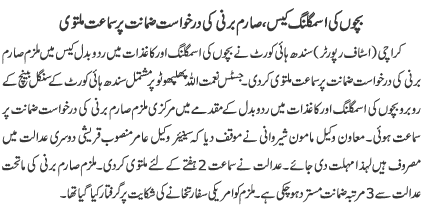 بچوں کی اسمگلنگ کیس، صارم برنی کی درخواست ضمانت پر سماعت ملتوی
کراچی (اسٹاف رپورٹر) سندھ ہائی کورٹ نے بچوں کی اسمگلنگ اور کاغذات میں ردوبدل کیس میں ملزم صارم
برنی کی درخواست ضمانت پر سماعت ملتوی کردی۔ جسٹس نعمت اللہ پھلپھوٹو پر مشتمل سندھ ہائی کورٹ کے سنگل بینچ کے
روبرو بچوں کی اسمگلنگ اور کاغذات میں ردوبدل کے مقدمے میں مرکزی ملزم صارم برنی کی درخواست ضمانت پر
سماعت ہوئی۔ معاون وکیل مامون شیروانی نے موقف دیا کہ سینیئر وکیل عامر منصوب قریشی دوسری عدالت میں
مصروف ہیں لہذا مہلت دی جائے۔ عدالت نے سماعت 2 ہفتے کے لئے ملتوی کردی۔ ملزم صارم برنی کی ماتحت
عدالت سے 3 مرتبہ ضمانت مسترد ہوچکی ہے۔ ملزم کو امریکی سفارتخانے کی شکایت پر گرفتار کیا گیا تھا۔